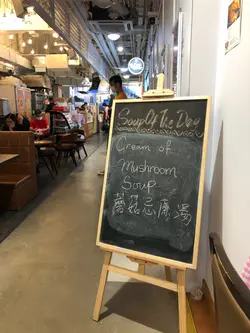 Soup Of The Day
Cream of
Mushroom
Soup
蘑菇忌廉湯